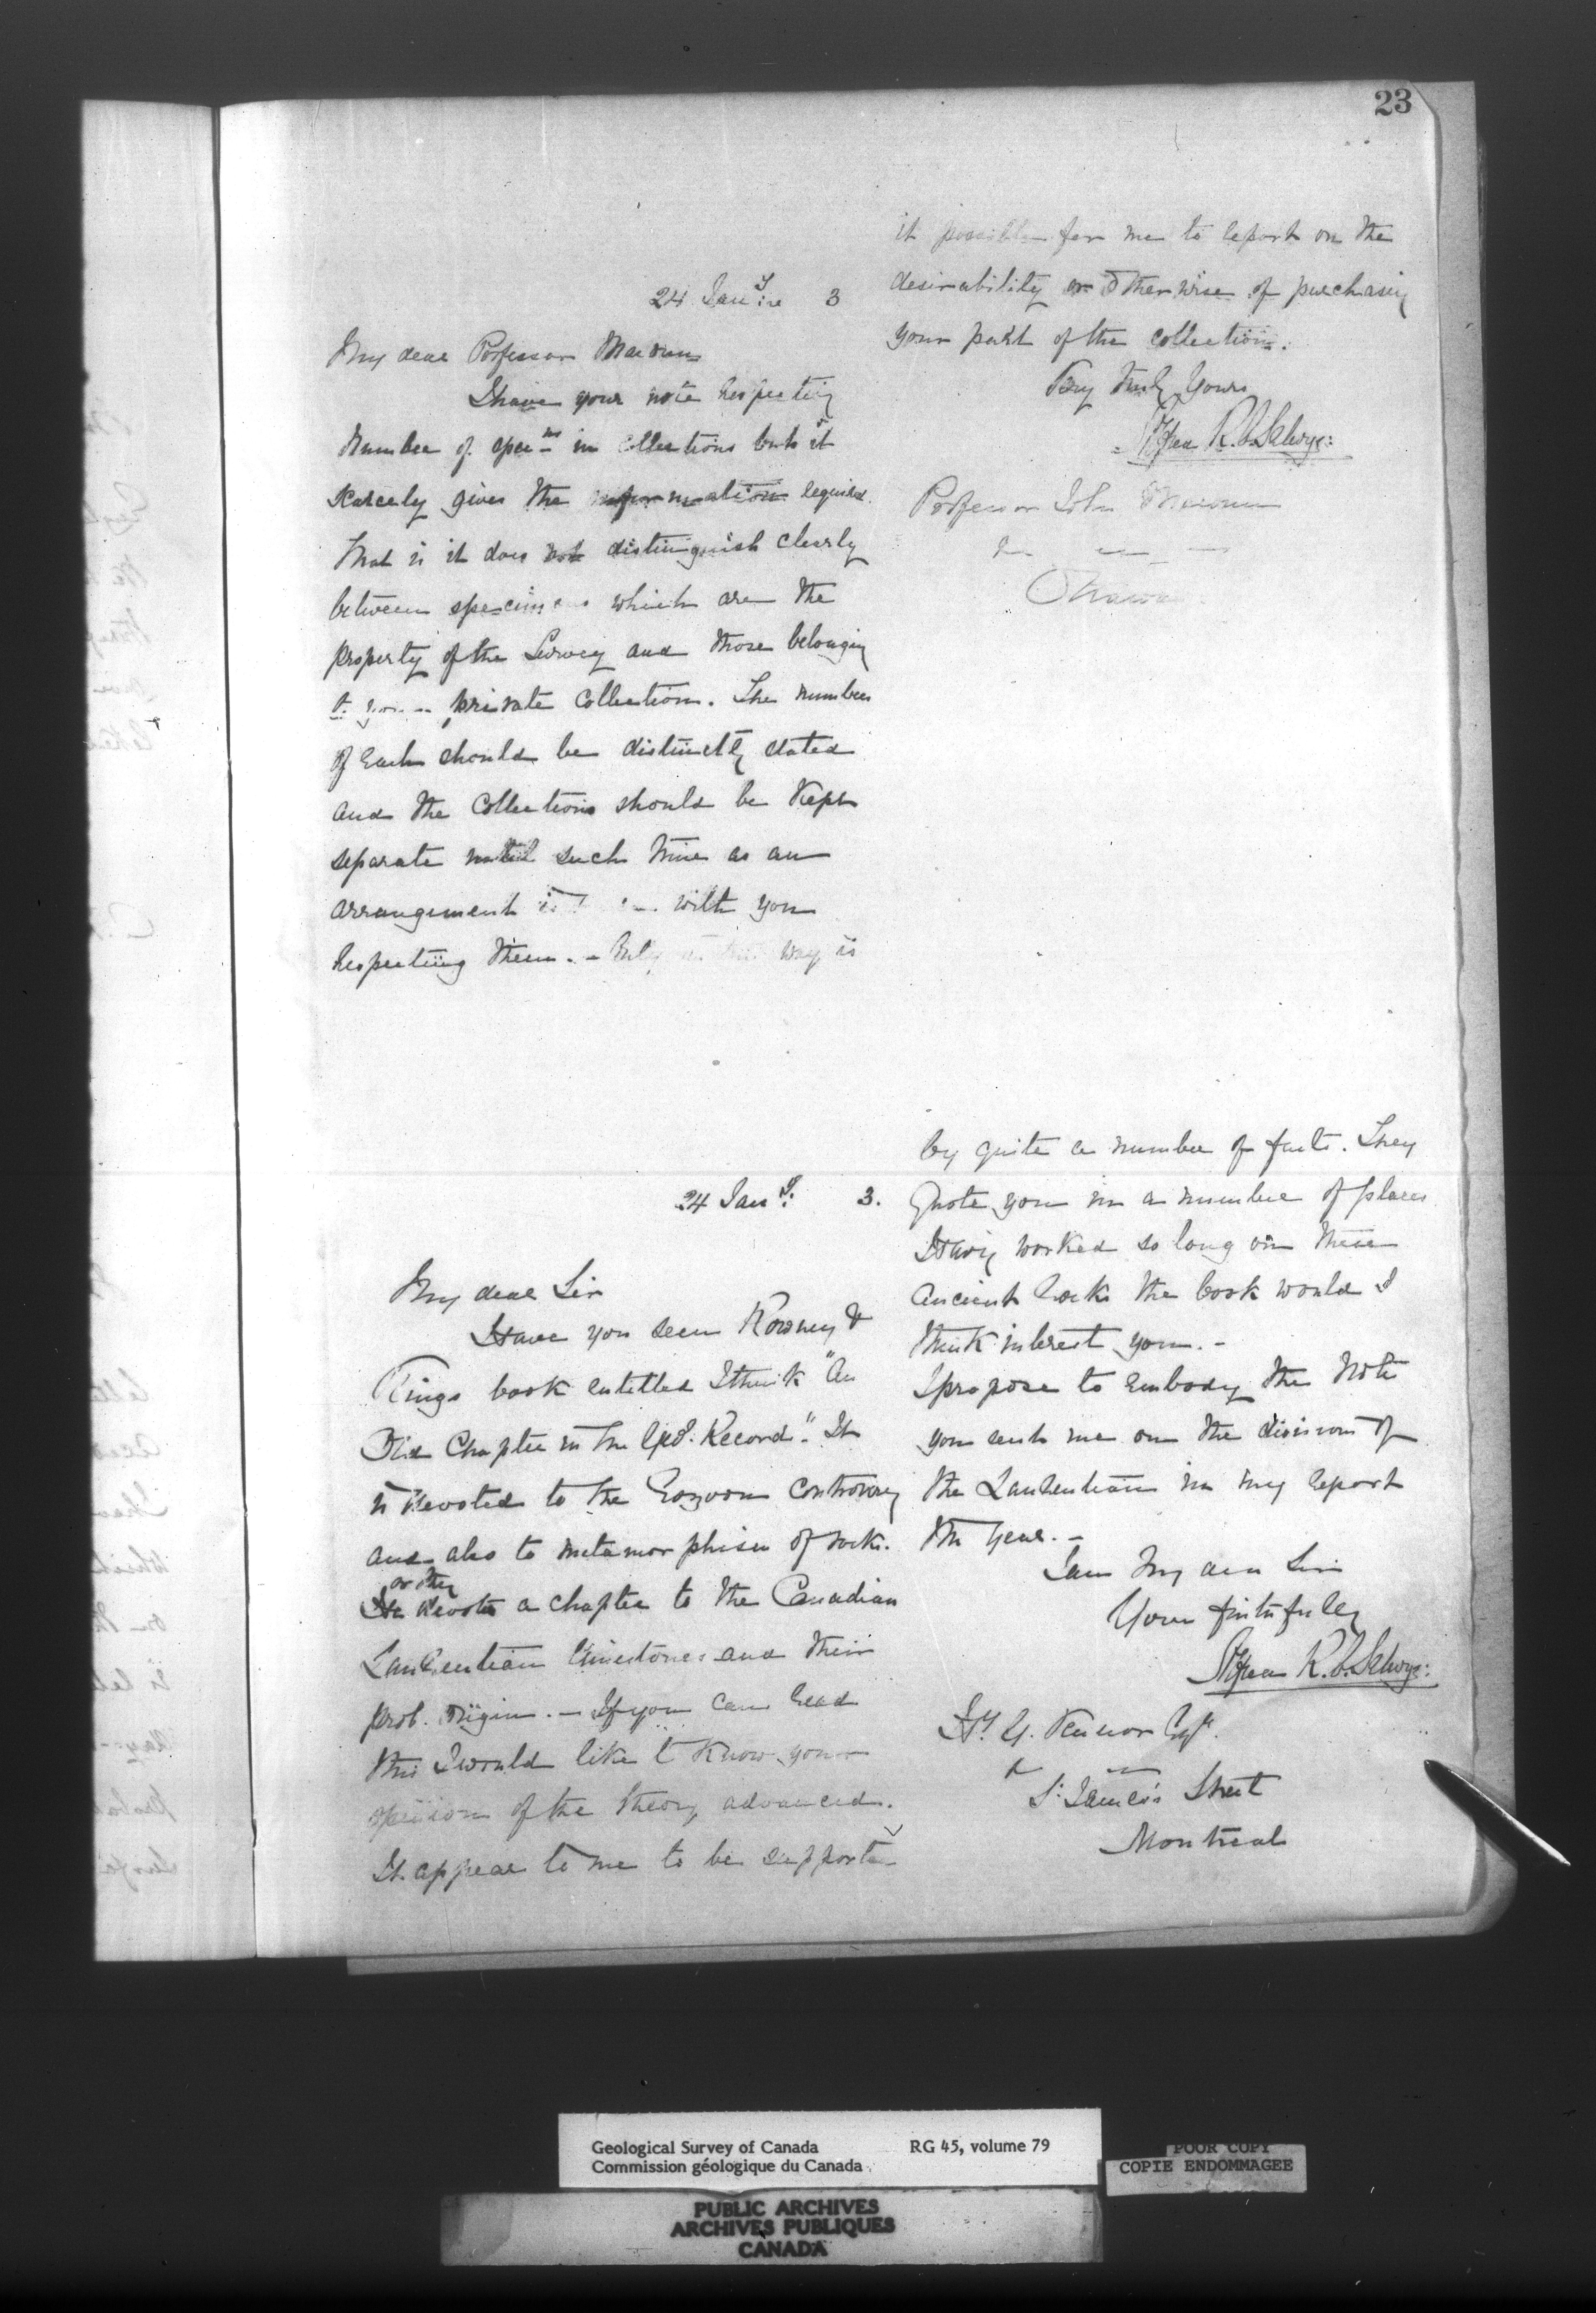 23
24 Jany 3
My dear Professor Macoun
I have your note respecting
Number of specms in collections but it
scarcely gives the information required.
That is it does not distinguish clearly
between specimens which are the
property of the Survey and those belonging
to your private collection. The numbers
of each should be distinctly stated
and the collections should be kept
separate until such time as an
arrangement is with you
respecting them. - Only in this way is
it possible for me to report on the
desirability or otherwise of purchasing
your part of the collection.
Very truly yours
Alfred R. C. Selwyn
Professor John Macoun
Ottawa
24 Jany 3.
My dear Sir
Have you seen Rowney &
Kings book entitled I think "An
Old Chapter in the Geol. Record". It
is devoted to the Eozoon controversy
and also to metamorphism of rocks.
or they
He devotes a chapter to the Canadian
Laurentian limestones and their
prob. origin. - If you can read
this I would like to know your
opinion of the theory advanced.
It appears to me to be supported
by quite a number of facts. They
quote you in a number of places
Having worked so long on these
ancient rocks the book would I
think interest you. -
I propose to embody the Note
you sent me on the divisions of
the Laurentian in my report
this year. -
I am My dear Sir
Yours faithfully
Alfred R. C. Selwyn
Hy. G. Vennor Esq.
St. James's Street
Montreal
Geological Survey of Canada RG 45, volume 79
Commission géologique du Canada
POOR COPY
COPIE ENDOMMAGEE
PUBLIC ARCHIVES
ARCHIVES PUBLIQUES
CANADA